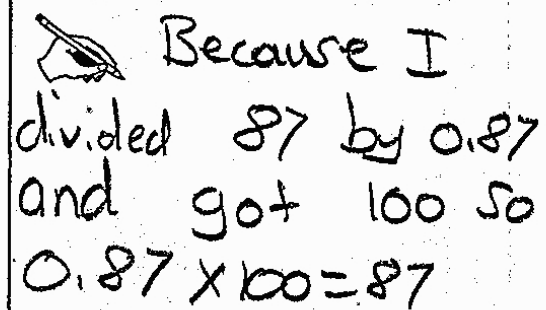 Because I
divided 87 by 0.87
and got 100 so
0.87 x 100 = 87